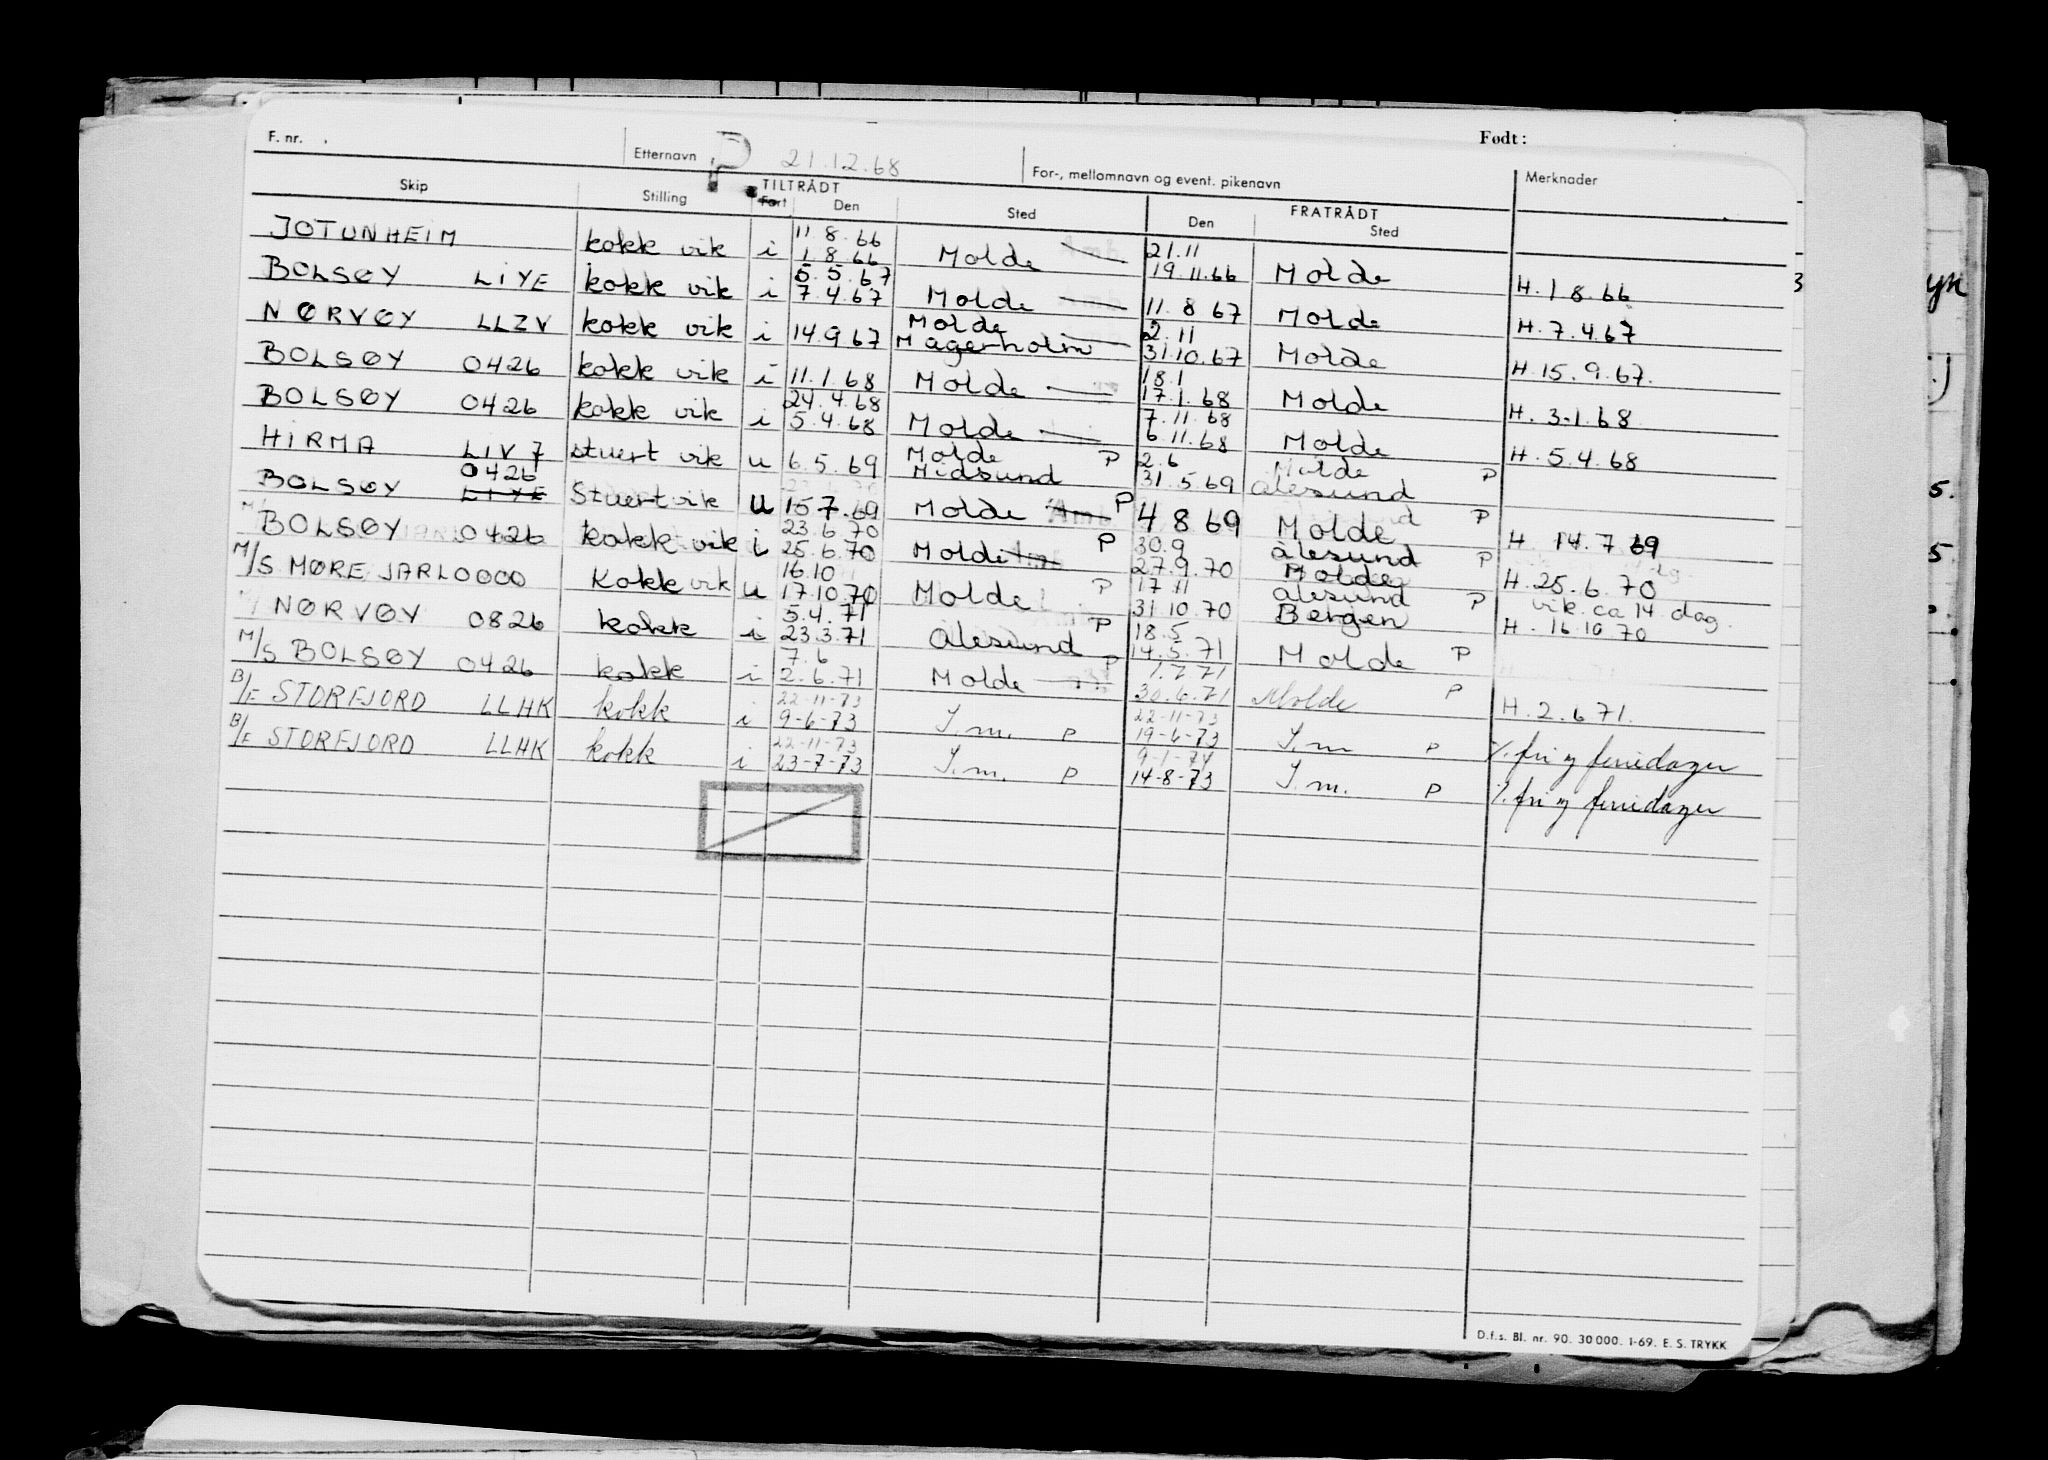 Født:
F. nr.
Etternavn P 21.12.68
For-, mellomnavn og event. pikenavn
Merknader
Skip Stilling TILTRÅDT Fart Den Sted FRATRÅDT Den Sted
11.8.66 21.11
JOTUNHEIM kokk vik i 1.8.66 Molde 19.11.66 Molde H. 1 8.66
5.5.67
BOLSØY LIYE kokk vik i 7.4.67 Molde 11.8 67 Molde H. 7.4.67
Molde 2.11
NØRVØY LLZV kokk vik i 14.9.67 Magerholm 31.10.67 Molde H. 15.9.67.
18.1
BOLSØY 0426 kokk vik i 11.1.68 Molde 17.1.68 Molde H. 3.1.68
24.4.68 7.11.68
BOLSØY 0426 kokk vik i 5.4.68 Molde 6.11.68 Molde H. 5.4.68
Molde P 2.6 Molde P
HIRMA LIV7 stuert vik u 6.5.69 Midsund 31.5.69 Ålesund
0426
BOLSØY LIYE Stuert vik u 15 7.69 Molde Amb P 4 8 69 Molde P H. 14.7 69
23.6.70 30.9 Ålesund P
BOLSØY 0426 kokk vik i 25.6.70 Molde P 27.9.70 Molde H. 25.6.70
16.10 17 11 Ålesund P vik. ca 14 dag.
M/S MØRE JARL 0000 Kokk vik u 17.10.70 Molde P 31.10.70 Bergen H. 16.10 70
5.4.71 P 18.5
NØRVØY 0826 kokk i 23.3.71 Ålesund 14.5.71 Molde P
7.6 P 1.7.71
M/S BOLSØY 0426 kokk i 2.6.71 Molde 30.6.71 Molde P H. 2.6 71.
22-11-73 22-11-73
B/F STORFJORD LLHK kokk i 9-6-73 I.m. P 19-6-73 I.m P %. fri og feriedager
22-11-73 9-1-74
B/F STORFJORD LLHK kokk i 23-7-73 I.m. P 14-8-73 I.m. P %. fri og feriedager
D.f.s. Bl. nr. 90. 30 000. 1-69. E. S. TRYKK